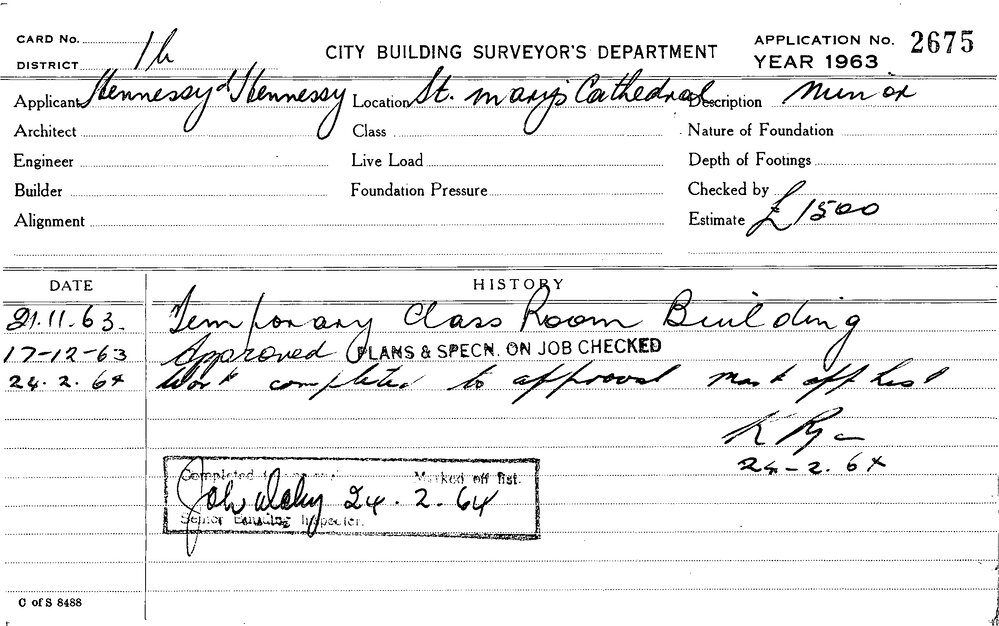 CARD No.
DISTRICT
CITY BUILDING SURVEYOR'S DEPARTMENT
APPLICATION No. 2675
YEAR 1963
Applicant Hennessy & Hennessy Location St. Mary's Cathedral Description Minor
Architect Class Nature of Foundation
Engineer Live Load Depth of Footings
Builder Foundation Pressure Checked by
Alignment Estimate £1500
DATE HISTORY
21.11.63. Temporary Class Room Building
17-12-63 Approved PLANS & SPECN. ON JOB CHECKED
24.2.64 Work completed to approval mark off list
K Ryan
24-2.64
Completed Marked off list.
24.2.64
Senior Building Inspector.
C of S 8488